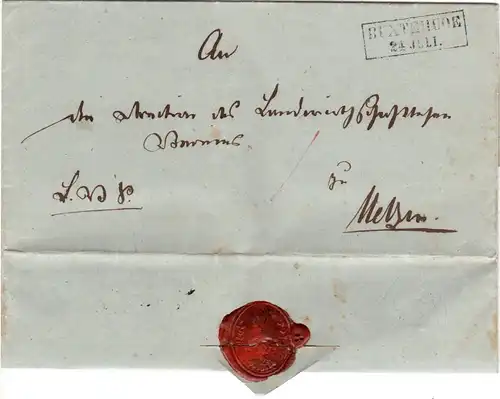 BUXTEHUDE
21 JULI.
An
die Direction des Landwirthschaftlichen
Vereins
zu
L. V. S.
Uelzen.